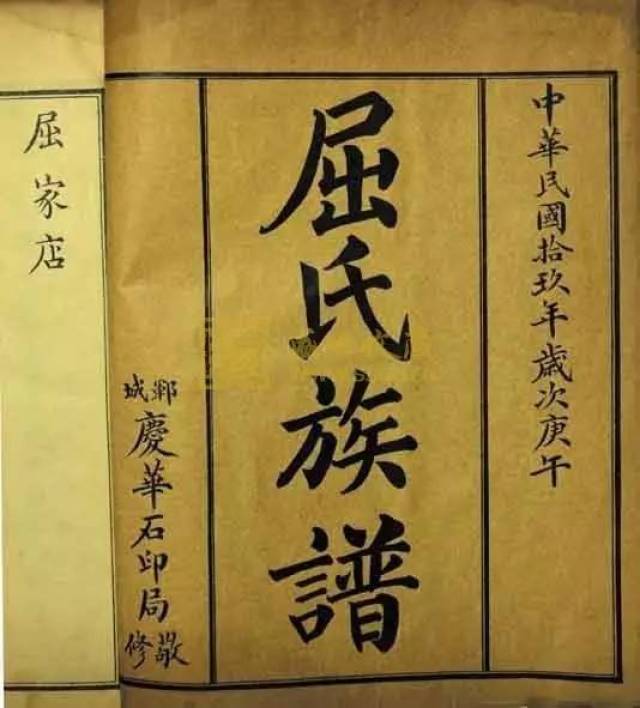 中華民國拾玖年歲次庚午
屈氏族譜
城慶華石印局敬修
屈家店